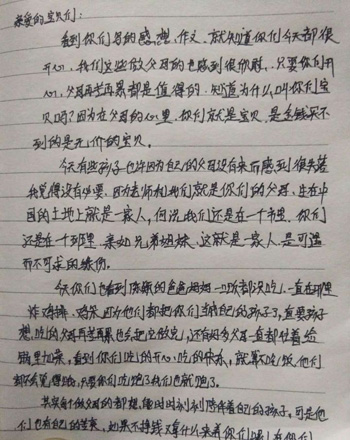 亲爱的宝贝们：
看到你们写的感想、作文，就知道你们今天都很
开心，我们这些做父母的也感到很欣慰，只要你们开
心，父母再苦再累都是值得的，知道为什么叫你们宝
贝吗？因为在父母的心里，你们就是宝贝，是金钱买不
到的是无价的宝贝。
今天有些孩子也许因为自己的父母没有来而感到很失落
我觉得没有必要，因为老师和我们就是你们的父母，生在中
国的土地上就是一家人，何况我们还是在一个市里，你们
还是在一个班里，亲如兄弟姐妹，这就是一家人，是可遇
而不可求的缘份。
今天你们也看到陈的爸爸妈妈一口饭都没吃，一直在那里
炸鸡排、鸡米，因为他们都把你们当成自己的孩子了，只要孩子
想吃的父母再苦再累也会把它做完，还有好多父母一直都忙着给
锅里加菜，看到你们吃的开心，吃的快乐，就算不吃饭他们
都不会觉得饿，只要你们吃饱了我们也就饱了。
其实每个做父母的都想能时时刻刻陪伴着自己的孩子，可是他
们也有自己的苦衷，如果不挣钱又拿什么来养你们呢！有你们